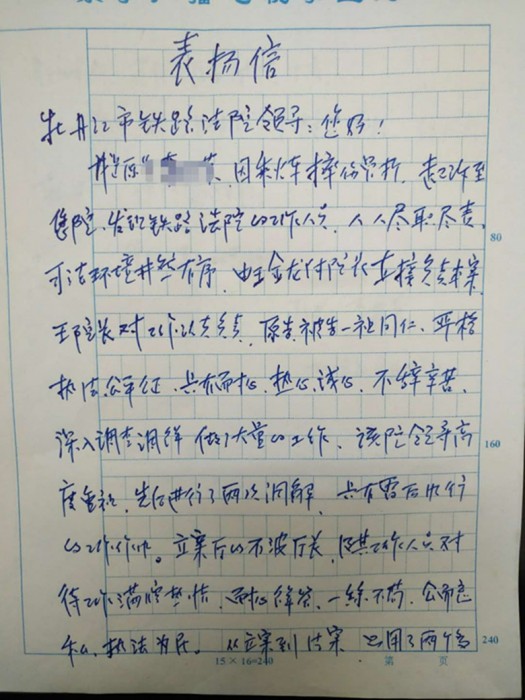 表扬信
牡丹江市铁路法院领导：您好！
因乘火车摔伤骨折，起诉至
您院，发现铁路法院的工作人员，人人尽职尽责，
司法环境井然有序，由王金龙付院长直接负责本案，
王院长对工作认真负责，原告被告一视同仁，严格
执法公平公正，具有耐心，热心，诚心，不辞辛苦，
深入调查调解做了大量的工作，该院领导高
度重视，先后进行了两次调解，具有雷厉风行
的工作作风。立案厅的厅长，及其工作人员对
待工作满腔热情，耐心解答，一丝不苟，公而忘
私，执法为民。从立案到结案只用了两个多
80
160
240
15×16=240
第 页